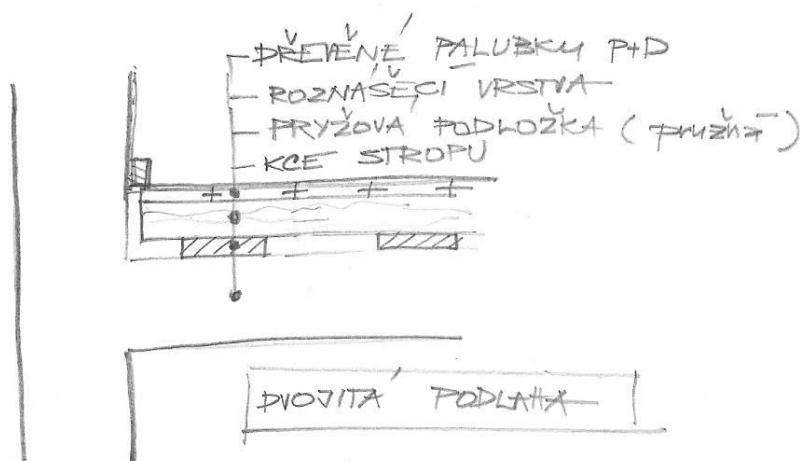 DŘEVĚNÉ PALUBKY P+D
ROZNÁŠECÍ VRSTVA
PRYŽOVÁ PODLOŽKA (pružná)
KCE STROPU
DVOJITÁ PODLAHA